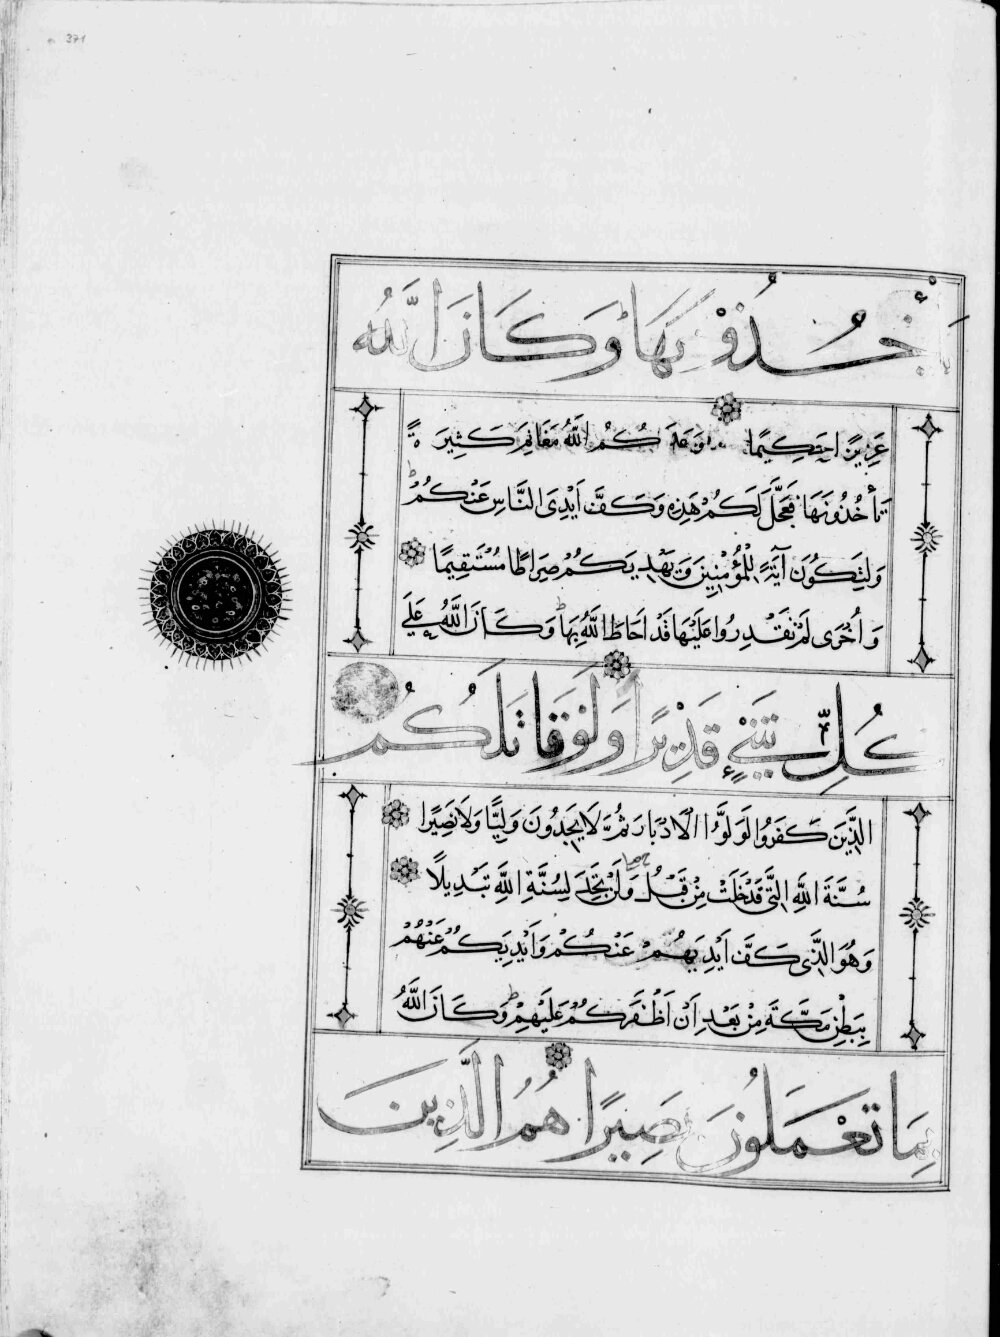 371
يَأْخُذُوْنَهَا وَكَانَ اللَّهُ
عَزِيزًا حَكِيمًا وَعَدَكُمُ اللَّهُ مَغَانِمَ كَثِيرَةً
تَأْخُذُونَهَا فَعَجَّلَ لَكُمْ هَذِهِ وَكَفَّ أَيْدِيَ النَّاسِ عَنْكُمْ
وَلِتَكُونَ آيَةً لِلْمُؤْمِنِينَ وَيَهْدِيَكُمْ صِرَاطًا مُسْتَقِيمًا
وَأُخْرَى لَمْ تَقْدِرُوا عَلَيْهَا قَدْ أَحَاطَ اللَّهُ بِهَا وَكَانَ اللَّهُ عَلَى
كُلِّ شَيْءٍ قَدِيرًا وَلَوْ قَاتَلَكُمُ
الَّذِينَ كَفَرُوا لَوَلَّوُا الْأَدْبَارَ ثُمَّ لَا يَجِدُونَ وَلِيًّا وَلَا نَصِيرًا
سُنَّةَ اللَّهِ الَّتِي قَدْ خَلَتْ مِنْ قَبْلُ وَلَنْ تَجِدَ لِسُنَّةِ اللَّهِ تَبْدِيلًا
وَهُوَ الَّذِي كَفَّ أَيْدِيَهُمْ عَنْكُمْ وَأَيْدِيَكُمْ عَنْهُمْ
بِبَطْنِ مَكَّةَ مِنْ بَعْدِ أَنْ أَظْفَرَكُمْ عَلَيْهِمْ وَكَانَ اللَّهُ
بِمَا تَعْمَلُونَ بَصِيرًا هُمُ الَّذِينَ